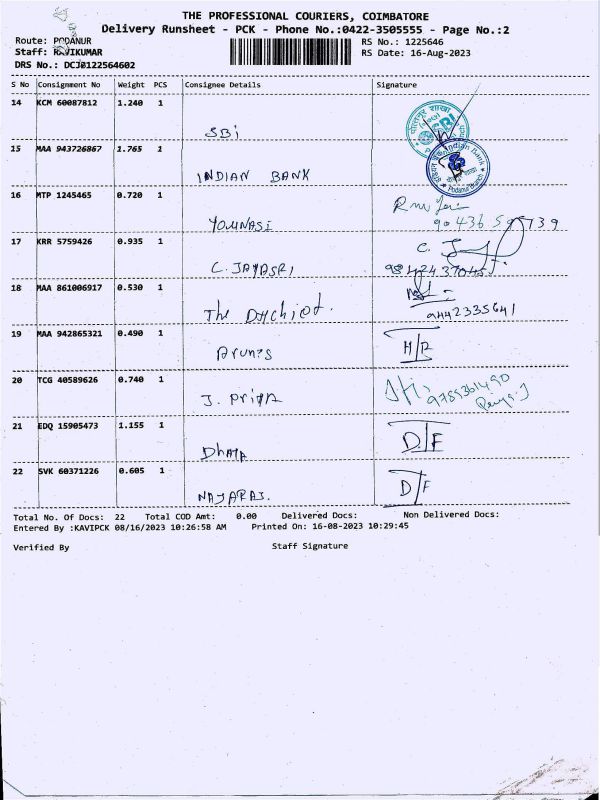 THE PROFESSIONAL COURIERS, COIMBATORE
Delivery Runsheet - PCK - Phone No.:0422-3505555 - Page No.:2
Route: PODANUR
RS No.: 1225646
Staff: RAVIKUMAR
RS Date: 16-Aug-2023
DRS No.: DCJ0122564602
S No Consignment No Weight PCS Consignee Details Signature
14 KCM 60087812 1.240 1
SBi
SBI
15 MAA 943726867 1.765 1
INDIAN BANK
Indian Bank
Podanur Branch
16 MTP 1245465 0.720 1
YOUNASI
17 KRR 5759426 0.935 1
C. JAYASRI
18 MAA 861006917 0.530 1
The
9442335641
19 MAA 942865321 0.490 1
Arun's
H/R
20 TCG 40589626 0.740 1
J. Priya
9789361490
21 EDQ 15905473 1.155 1
D/F
22 SVK 60371226 0.605 1
NAJARAJ.
D/F
Total No. Of Docs: 22 Total COD Amt: 0.00 Delivered Docs: Non Delivered Docs:
Entered By :KAVIPCK 08/16/2023 10:26:58 AM Printed On: 16-08-2023 10:29:45
Verified By Staff Signature